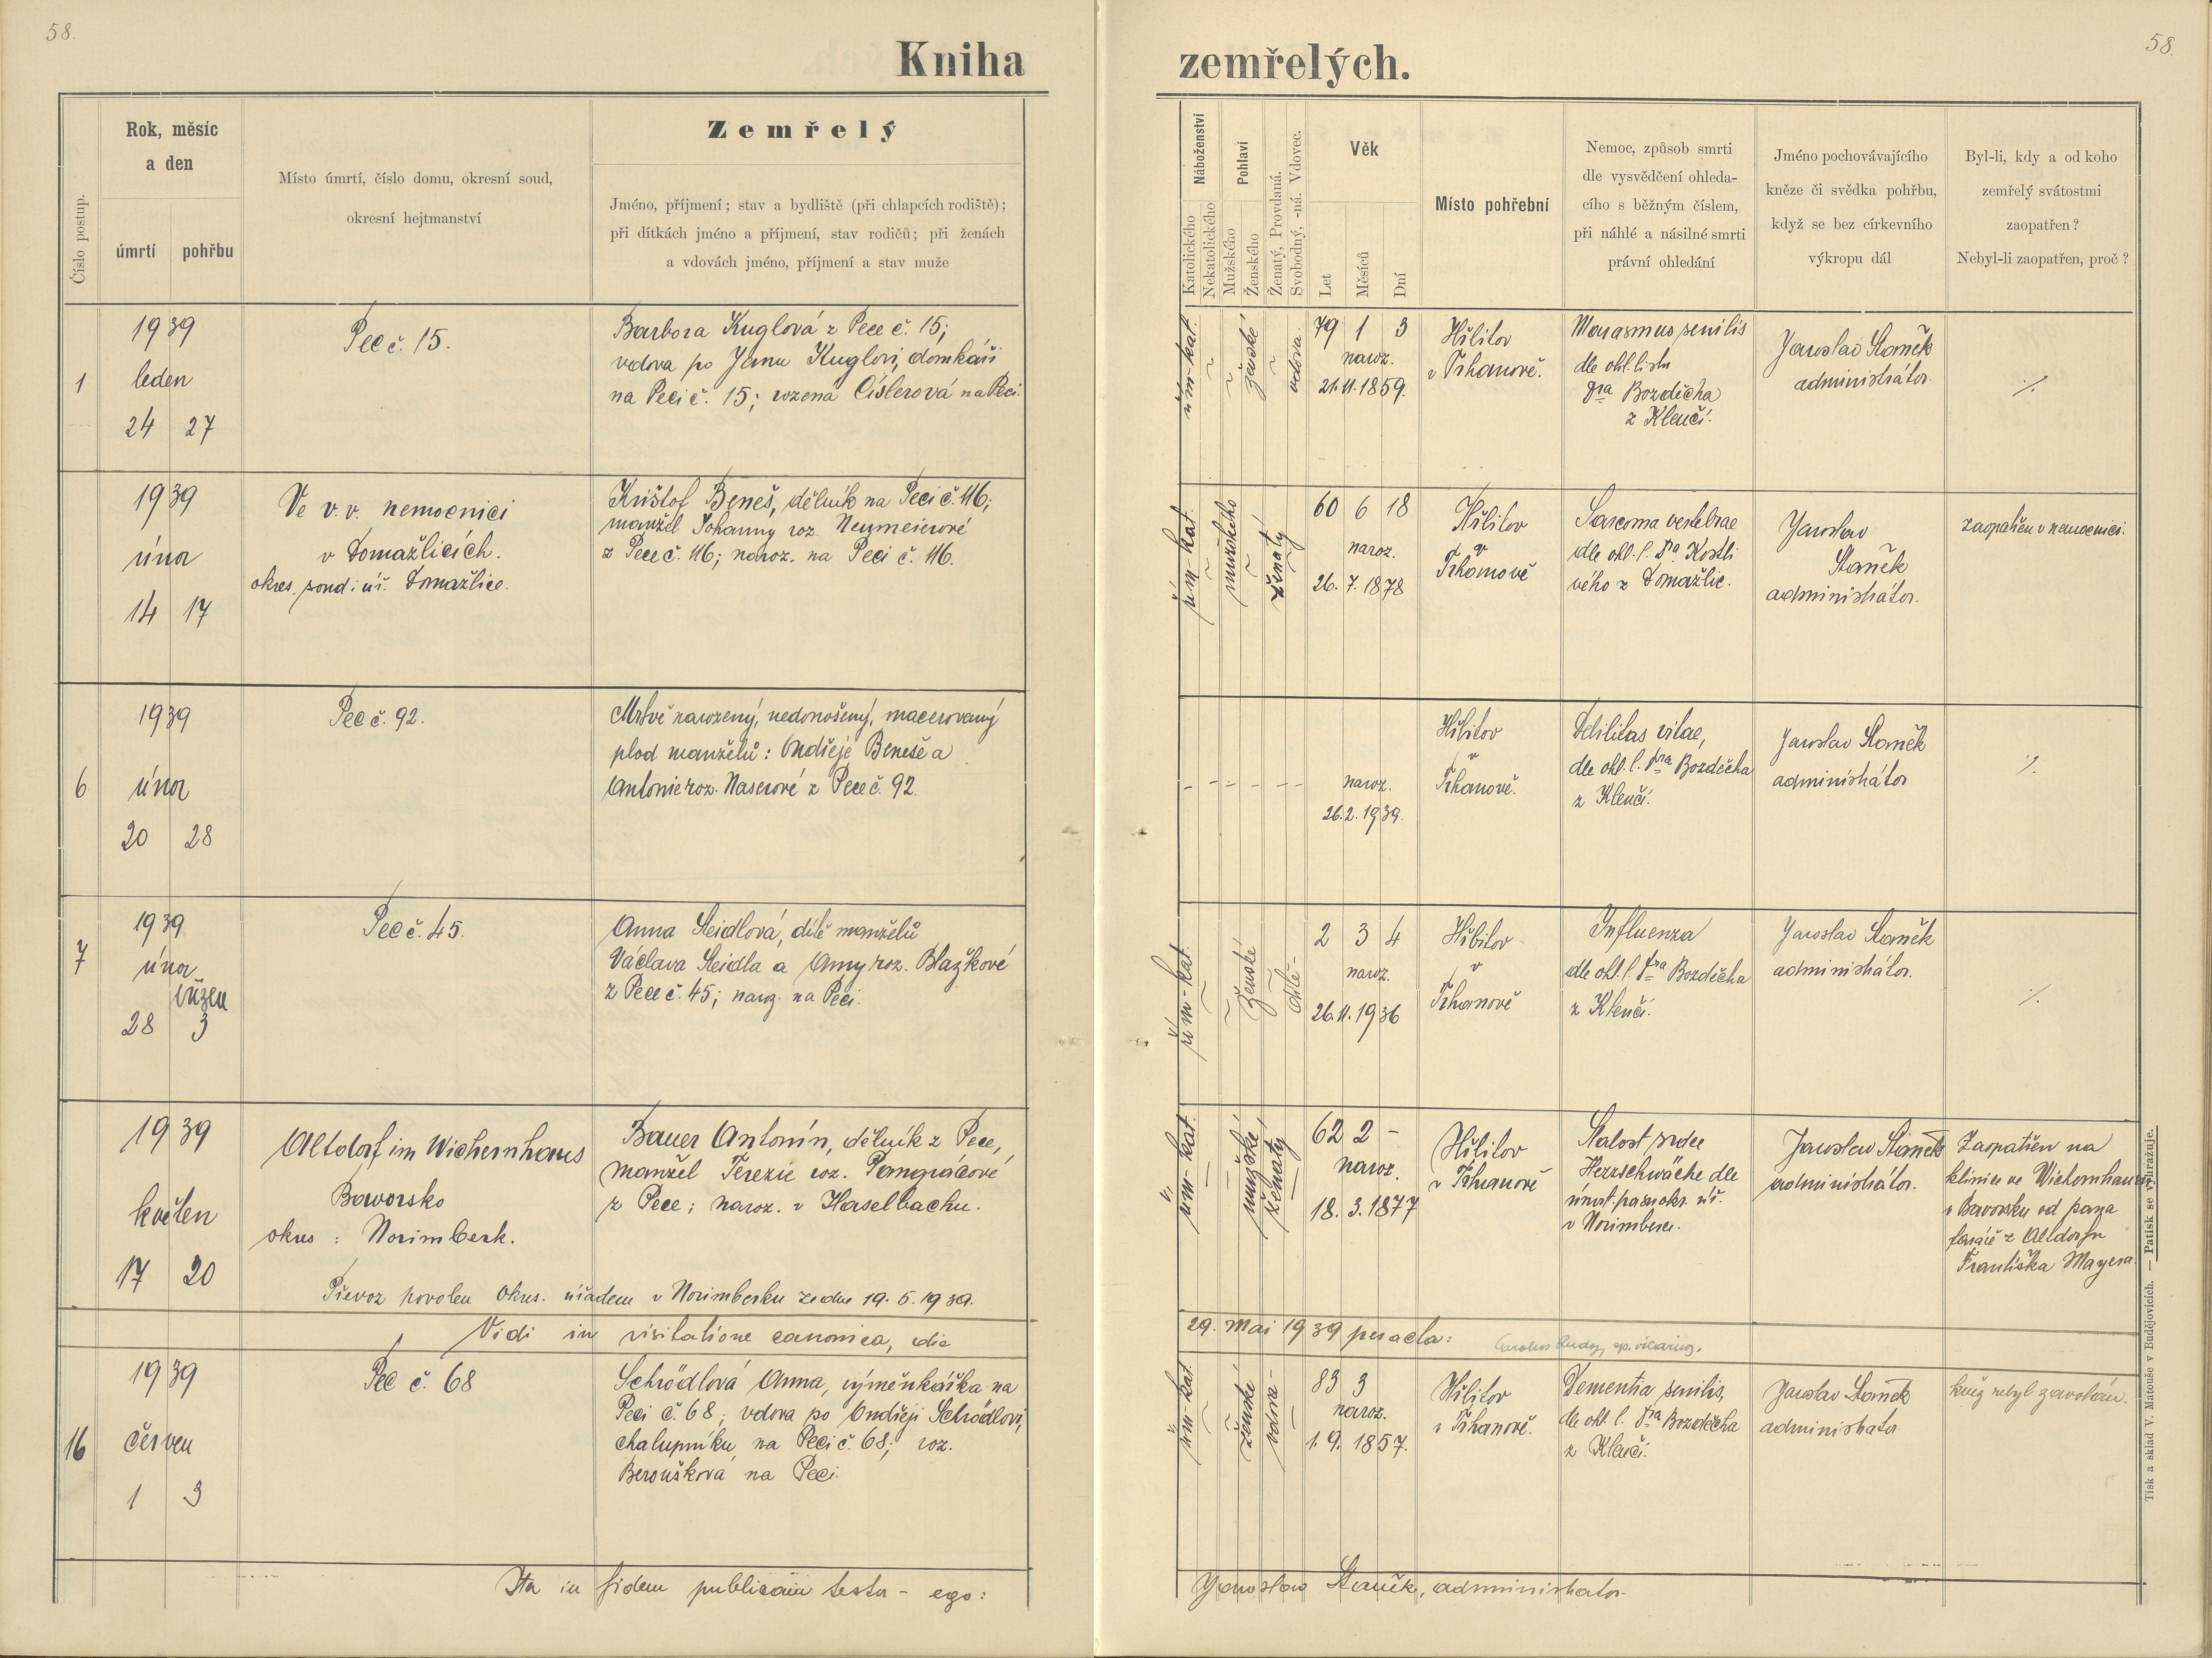 58.
Kniha
zemřelých.
58.
Číslo postup.
Rok, měsíc
a den
úmrtí
pohřbu
Místo úmrtí, číslo domu, okresní soud,
okresní hejtmanství
Zemřelý
Jméno, příjmení; stav a bydliště (při chlapcích rodiště);
při dítkách jméno a příjmení, stav rodičů; při ženách
a vdovách jméno, příjmení a stav muže
Náboženství
Katolického
Nekatolického
Pohlaví
Mužského
Ženského
Ženatý, Provdaná.
Svobodný, -ná. Vdovec.
Věk
Let
Měsíců
Dní
Místo pohřební
Nemoc, způsob smrti
dle vysvědčení ohleda-
cího s běžným číslem,
při náhlé a násilné smrti
právní ohledání
Jméno pochovávajícího
kněze či svědka pohřbu,
když se bez církevního
výkropu dál
Byl-li, kdy a od koho
zemřelý svátostmi
zaopatřen?
Nebyl-li zaopatřen, proč?
1
1939
leden
24 27
Pec č. 15.
Barbora Kuglová z Pece č. 15;
vdova po Janu Kuglovi, domkáři
na Peci č. 15; rozená Císlerová na Peci.
řím-kat.
ženské
vdova.
79 1 3
naroz.
21.11.1859.
Hřbitov
v Trhanově.
Marasmus senilis
dle ohl. listu
Dra Bozděcha
z Klenčí.
Jaroslav Staněk
administrátor.
./.
1939
únor
14 17
Ve v. v. nemocnici
v Domažlicích.
okres. soud i úř. Domažlice.
Krištof Beneš, dělník na Peci č. 116;
manžel Johanny roz. Neumeierové
z Pece č. 116; naroz. na Peci č. 116.
řím-kat.
mužského
ženatý
60 6 18
naroz.
26. 7. 1878
Hřbitov
v
Trhanově
Sarcoma vertebrae
dle ohl. l. Dra Kostli
vého z Domažlic.
Jaroslav
Staněk
administrátor.
zaopatřen v nemocnici.
6
1939
únor
20 28
Pec č. 92.
Mrtvě narozený, nedonošený, macerovaný
plod manželů: Ondřeje Beneše a
Antonie roz. Naserové z Pece č. 92.
- - - - - -
naroz.
26.2.1939.
Hřbitov
v
Trhanově.
Debilitas vitae,
dle ohl. l. Dra Bozděcha
z Klenčí.
Jaroslav Staněk
administrátor
./.
7
1939
únor
březen
28 3
Pec č. 45.
Anna Seidlová, dítě manželů
Václava Seidla a Anny roz. Blažkové
z Pece č. 45; naroz. na Peci.
řím-kat.
ženské
dítě-
2 3 4
naroz.
26.11.1936
Hřbitov
v
Trhanově
Influenza
dle ohl. l. Dra Bozděcha
z Klenčí.
Jaroslav Staněk
administrátor.
./.
1939
květen
17 20
Altdorf im Wichernhaus
Bavorsko
okres : Norimberk.
Bauer Antonín, dělník z Pece,
manžel Terezie roz. Pangrácové
z Pece; naroz. v Haselbachu.
Převoz povolen okres. úřadem v Norimberku ze dne 19. 5. 1939.
řím-kat.
mužské
ženatý
62 2 -
naroz.
18. 3. 1877
Hřbitov
v Trhanově
Slabost srdce
Herzschwäche dle
úmrt. pasu okr. úř.
v Norimberce.
Jaroslav Staněk
administrátor.
Zaopatřen na
klinice ve Wichernhausu
v Bavorsku od pana
faráře z Altdorfu
Františka Mayera.
Vidi in visitatione canonica, die
29. Mai 1939 peracta:
16
1939
červen
1 3
Pec č. 68
Schrödlová Anna, výměnkářka na
Peci č. 68; vdova po Ondřeji Schrödlovi,
chalupníku na Peci č. 68; roz.
Beroušková na Peci.
řím-kat.
ženské
vdova-
83 3
naroz.
1. 9. 1857.
Hřbitov
v Trhanově.
Dementia senilis,
dle ohl. l. Dra Bozděcha
z Klenčí.
Jaroslav Staněk
administrátor
kněz nebyl zavolán.
Ita in fidem publicam testor - ego:
Jaroslav Staněk, administrator.
Tisk a sklad V. Matouše v Budějovicích. — Patisk se vyhražuje.